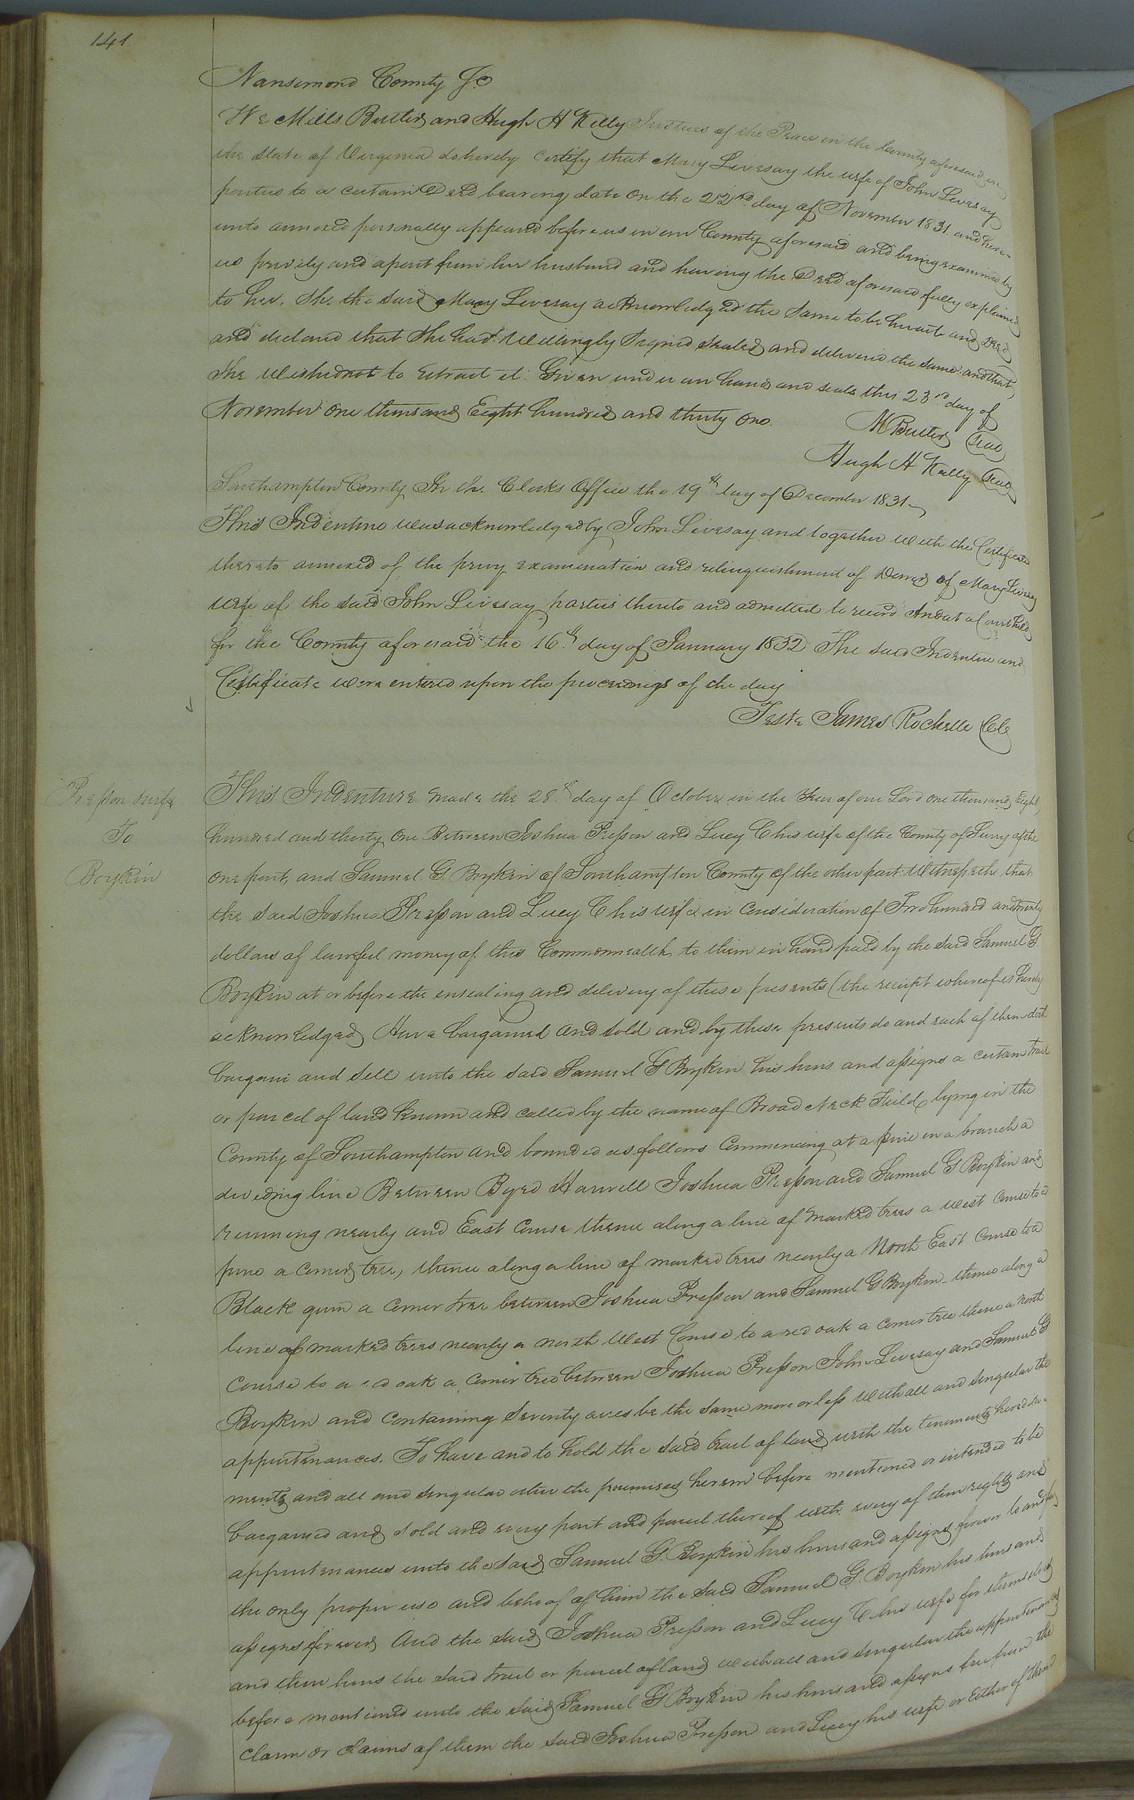 141
Nansemond County Sc
We Mills Butler and Hugh H Kelly Justices of the Peace in the County aforesaid in
the State of Virginia do hereby certify that Mary Livesay the wife of John Livesay
parties to a certain Deed bearing date on the 22nd day of November 1831 and here-
unto annexed personally appeared before us in our County aforesaid and being examined by
us privily and apart from her husband and having the Deed aforesaid fully explained
to her. She the said Mary Livesay acknowledged the same to be her act and Deed
and declared that She had Willingly Signed Sealed and delivered the same and that
She Wished not to retract it. Given under our hands and seals this 23rd day of
November one thousand Eight hundred and thirty one.
M Butler Seal
Hugh H Kelly Seal
Southampton County In the Clerks Office the 19th day of December 1831
This Indenture was acknowledged by John Livesay and together with the Certificate
thereto annexed of the privy examination and relinquishment of Dower of Mary Livesay
wife of the said John Livesay parties thereto and admitted to record And at a Court held
for the County aforesaid the 16th day of January 1832 The said Indenture and
Certificate were entered upon the proceedings of the day
Teste James Rochelle CC
Presson & wife
To
Boykin
This Indenture Made the 28th day of October in the Year of our Lord one thousand Eight
hundred and thirty One Between Joshua Presson and Lucy C his wife of the County of Surry of the
one part, and Samuel G. Boykin of Southampton County of the other part Witnesseth that
the said Joshua Presson and Lucy C his wife in Consideration of Two hundred and
dollars of lawful money of this Commonwealth to them in hand paid by the said Samuel G
Boykin at or before the ensealing and delivery of these presents (the receipt whereof is hereby
acknowledged) Have bargained and Sold and by these presents do and each of them doth
bargain and Sell unto the said Samuel G Boykin his heirs and assigns a certain tract
or parcel of land known and called by the name of Broad Neck Feild lying in the
County of Southampton and bounded as follows Commencing at a pine in a branch a
dividing line Between Byrd Harvell Joshua Presson and Samuel G Boykin and
running nearly and East Course thence along a line of Marked trees a West Course to a
pine a corner tree, thence along a line of marked trees nearly a North East Course to a
Black gum a Corner tree between Joshua Presson and Samuel G Boykin thence along a
line of marked trees nearly a north West Course to a red oak a corner tree thence a North
Course to a red oak a Corner tree between Joshua Presson John Livesay and Samuel G
Boykin and Containing Seventy acres be the Same more or less With all and Singular the
appurtenances. To have and to hold the said tract of land with the tenements heredita-
ments and all and Singular other the premises herein before mentioned or intended to be
bargained and Sold and every part and parcel thereof with every of their rights and
appurtenances unto the said Samuel G. Boykin his heirs and assigns forever to and for
the only proper use and behoof of him the said Samuel G. Boykin his heirs and
assigns forever And the said Joshua Presson and Lucy C his wife for themselves
and their heirs the said tract or parcel of land with all and Singular the appurtenances
before mentioned unto the said Samuel G Boykin his heirs and assigns free from the
Claim or Claims of them the said Joshua Presson and Lucy his wife or Either of them